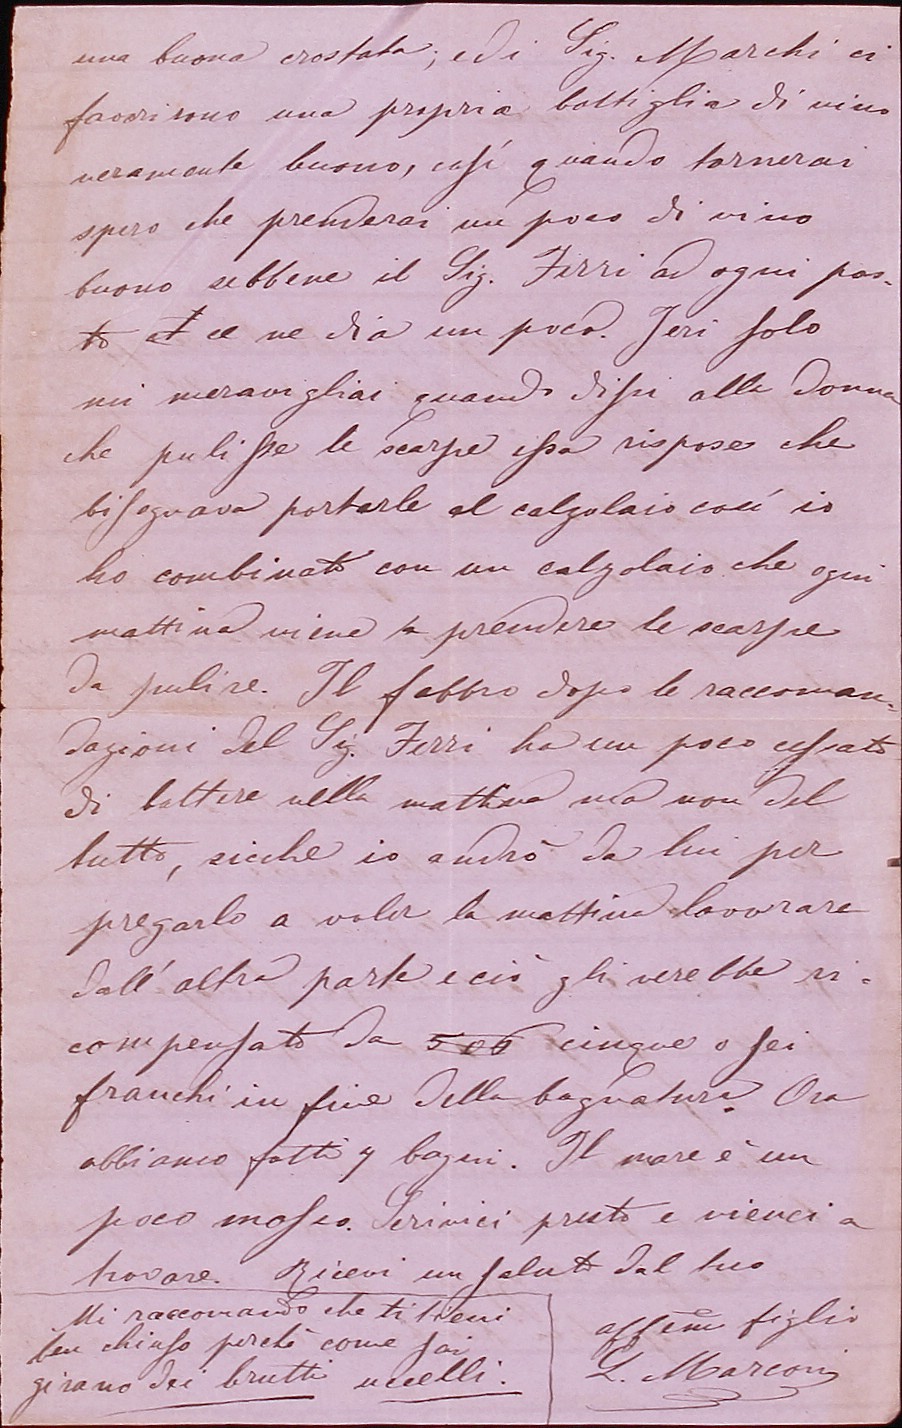 una buona crostata; ed i Sig. Marchi ci
favorirono una propria bottiglia di vino
veramente buono, così quando tornerai
spero che prenderai un poco di vino
buono sebbene il Sig. Ferri ad ogni pas-
to ce ne dia un poco. Jeri solo
mi meravigliai quando dissi alla donna
che pulisse le scarpe essa rispose che
bisognava portarle al calzolaio così io
ho combinato con un calzolaio che ogni
mattina viene a prendere le scarpe
da pulire. Il fabbro dopo le raccoman-
dazioni del Sig. Ferri ha un poco cessato
di battere nella mattina ma non del
tutto, sicche io andrò da lui per
pregarlo a voler la mattina lavorare
dall'altra parte e ciò gli verebbe ri-
compensato da 5 o 6 cinque o sei
franchi in fine della bagnatura. Ora
abbiamo fatti 7 bagni. Il mare è un
poco mosso. Scrivici presto e vienci a
trovare. Ricevi un saluto dal tuo
affemo figlio
L. Marconi
Mi raccomando che ti tieni
ben chiuso perchè come sai
girano dei brutti uccelli.